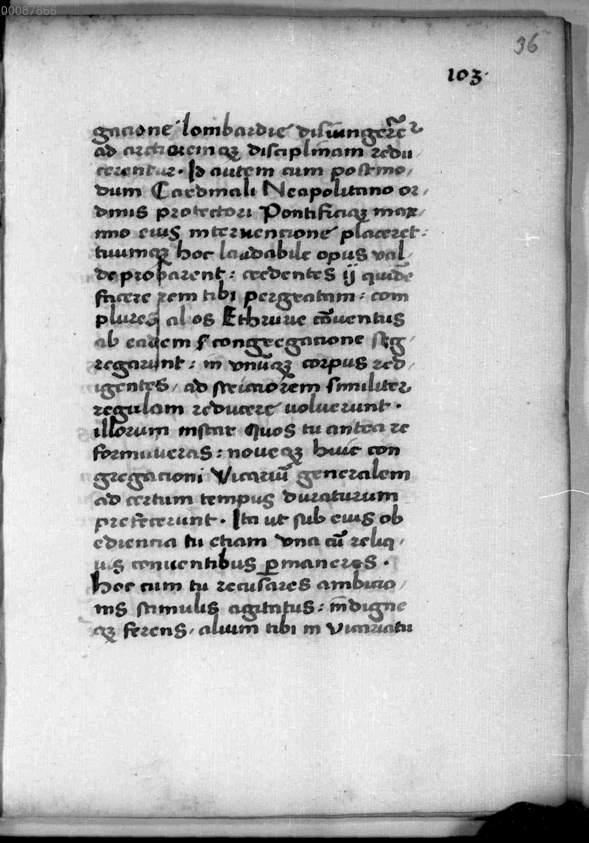 00087866
36
103.
gacione lombardie disiungerēt
ad arctioremqꝫ disciplinam redu
cerentur. Id autem cum postmo,
dum Cardinali Neapolitano or,
dinis protectori Pontificiqꝫ max,
imo eius interuencione placeret:
tuumqꝫ hoc laudabile opus val,
de probarent: credentes ij quidē
facere rem tibi pergratam: com
plures alios Ethrurie cōuentus
ab eadem congregacione seg,
regarunt: in vnūqꝫ corpus red,
igentes, ad strictiorem similiter
regulam reducere uoluerunt.
illorum instar quos tu antea re
formaueras: noueqꝫ huic con
gregacioni Vicariū generalem
ad certum tempus duraturum
prefecerunt. Ita ut sub eius ob
ediencia tu etiam vna cū reliq,
uis conuentibus ꝑmaneres.
Hoc cum tu recusares ambicio,
nis stimulis agitatus: īndigne
qꝫ ferens, alium tibi in vicariatu